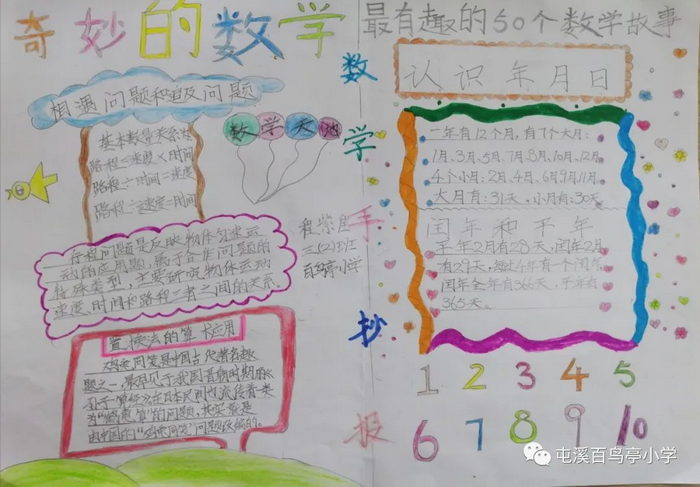 奇妙的数学
相遇问题和追及问题
基本数量关系:
路程=速度×时间
路程÷时间=速度
路程÷速度=时间
数学天地
行程问题是反映物体匀速运
动的应用题,属于合作问题的
特殊类型,主要研究物体运动
速度、时间和路程三者之间的关系。
置换法的算术应用
鸡兔同笼是中国古代著名趣
题之一,
数学手抄报
三(2)班
百鸟亭小学
最有趣的50个数学故事
认识年月日
一年有12个月,有7个大月:
1月、3月、5月、7月、8月、10月、12月
4个小月:2月、4月、6月、9月、11月。
大月有:31天,小月有:30天
闰年和平年
平年2月有28天,闰年2月
有29天,每过4年有一个闰年,
闰年全年有366天,平年有
365天。
1 2 3 4 5
6 7 8 9 10
屯溪百鸟亭小学